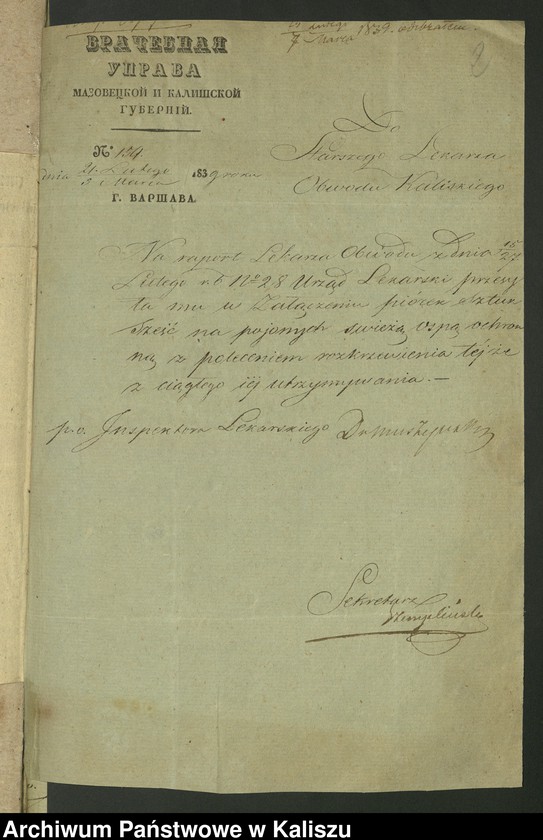 7 Marca 1839. odebrałem
2
ВРАЧЕБНАЯ
УПРАВА
МАЗОВЕЦКОЙ И КАЛИШСКОЙ
ГУБЕРНІЙ.
№ 124
dnia Lutego
Marca 1839 roku
Г. ВАРШАВА.
Do
Starszego Lekarza
Obwodu Kaliskiego
Na raport Lekarza Obwodu z dnia 15/27
Lutego r.b. No 28 Urząd Lekarski przesy
ła mu w Załączeniu piórek sztuk
Sześć na pojonych świeżą ospą ochron
ną z poleceniem rozkrzewienia tejże
z ciągłego jéj utrzymywania.—
p.o. Inspektora Lekarskiego
Sekretarz
Archiwum Państwowe w Kaliszu